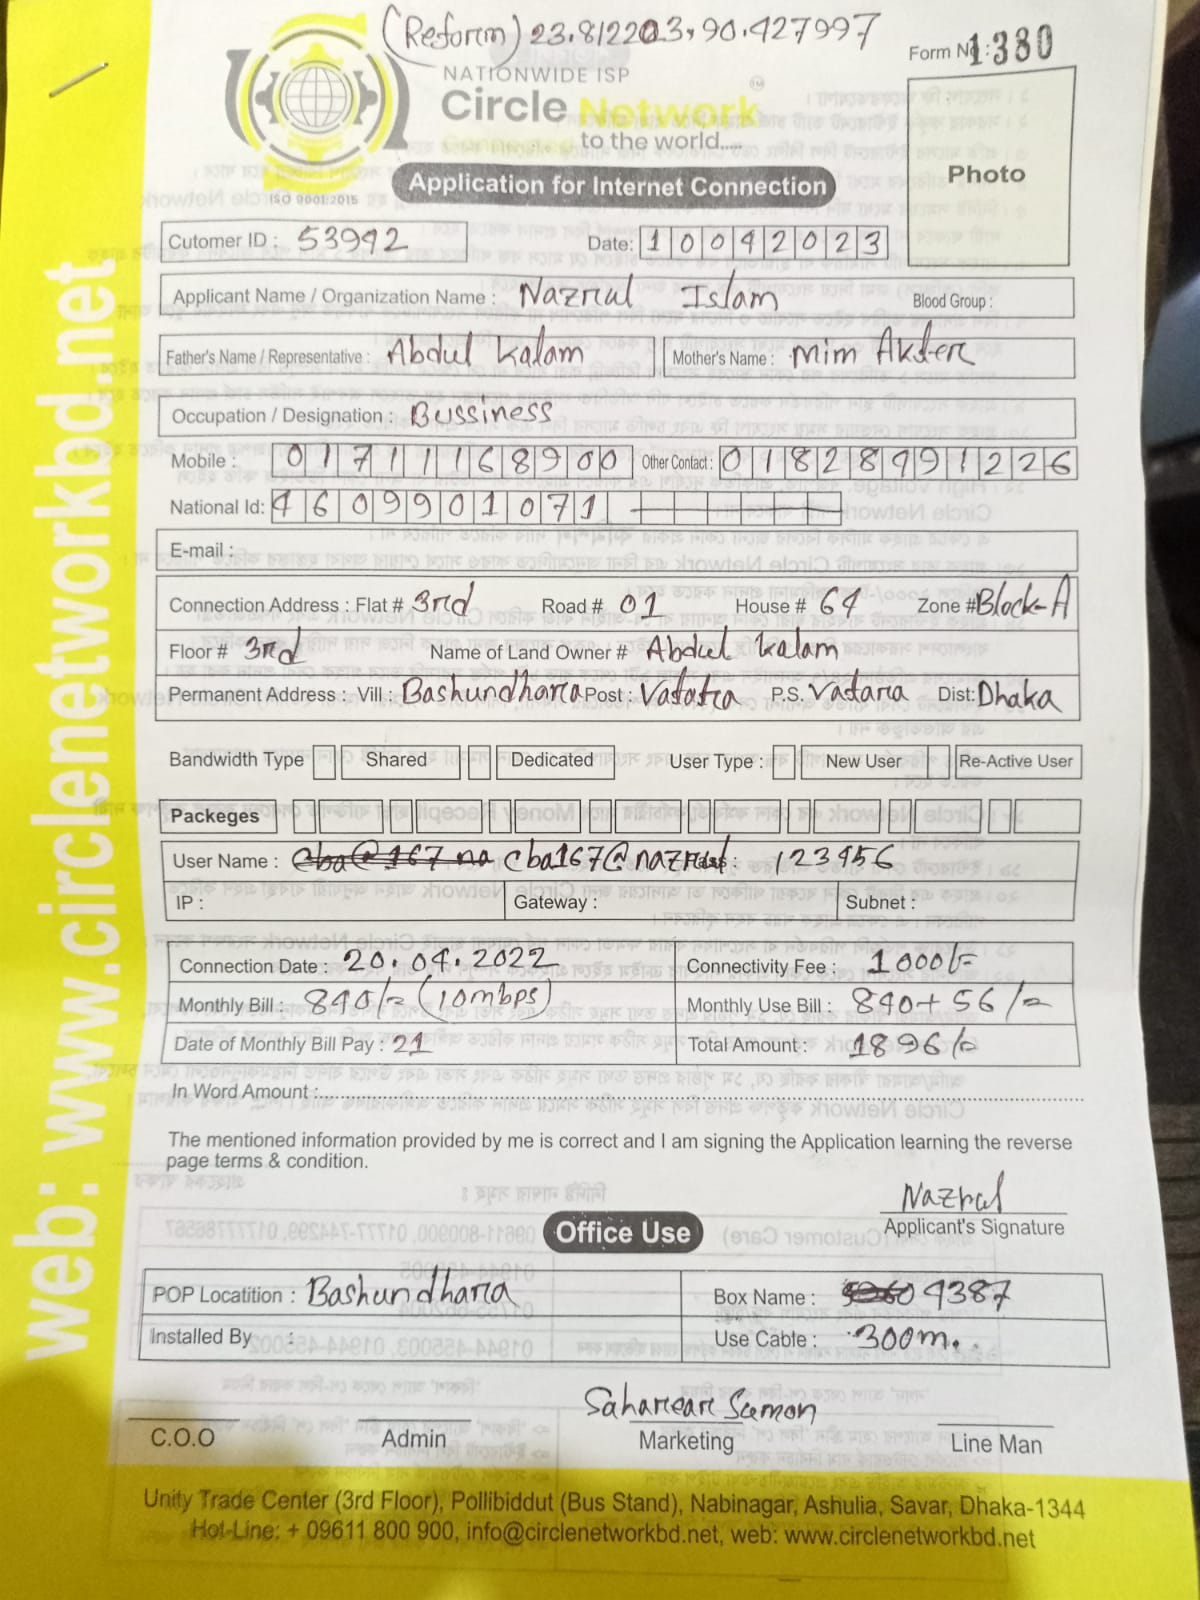 (Reform) 23.812203,90.427997
Form No: 1380
NATIONWIDE ISP
Circle Network
to the world.....
ISO 9001:2015
Photo
Application for Internet Connection
Cutomer ID : 53942 Date: 10042023
Applicant Name / Organization Name : Nazrul Islam Blood Group :
Father's Name / Representative : Abdul Kalam Mother's Name : Mim Akter
Occupation / Designation : Bussiness
Mobile : 01711168900 Other Contact : 01828991226
National Id: 4609901071
E-mail :
Connection Address : Flat # 3rd Road # 01 House # 64 Zone # Block-A
Floor # 3rd Name of Land Owner # Abdul Kalam
Permanent Address : Vill : Bashundhara Post : Vatara P.S. Vatara Dist: Dhaka
Bandwidth Type Shared Dedicated User Type : New User Re-Active User
Packeges
User Name : cba167@nazrul Pass : 123456
IP : Gateway : Subnet :
Connection Date : 20.04.2022 Connectivity Fee : 1000/=
Monthly Bill : 840/= (10mbps) Monthly Use Bill : 840+56/=
Date of Monthly Bill Pay : 21 Total Amount : 1896/=
In Word Amount :
The mentioned information provided by me is correct and I am signing the Application learning the reverse
page terms & condition.
Nazrul
Applicant's Signature
Office Use
POP Locatition : Bashundhara Box Name : 4387
Installed By : Use Cable : 300m.
Sahareare Sumon
C.O.O Admin Marketing Line Man
Unity Trade Center (3rd Floor), Pollibiddut (Bus Stand), Nabinagar, Ashulia, Savar, Dhaka-1344
Hot-Line: + 09611 800 900, info@circlenetworkbd.net, web: www.circlenetworkbd.net
web: www.circlenetworkbd.net